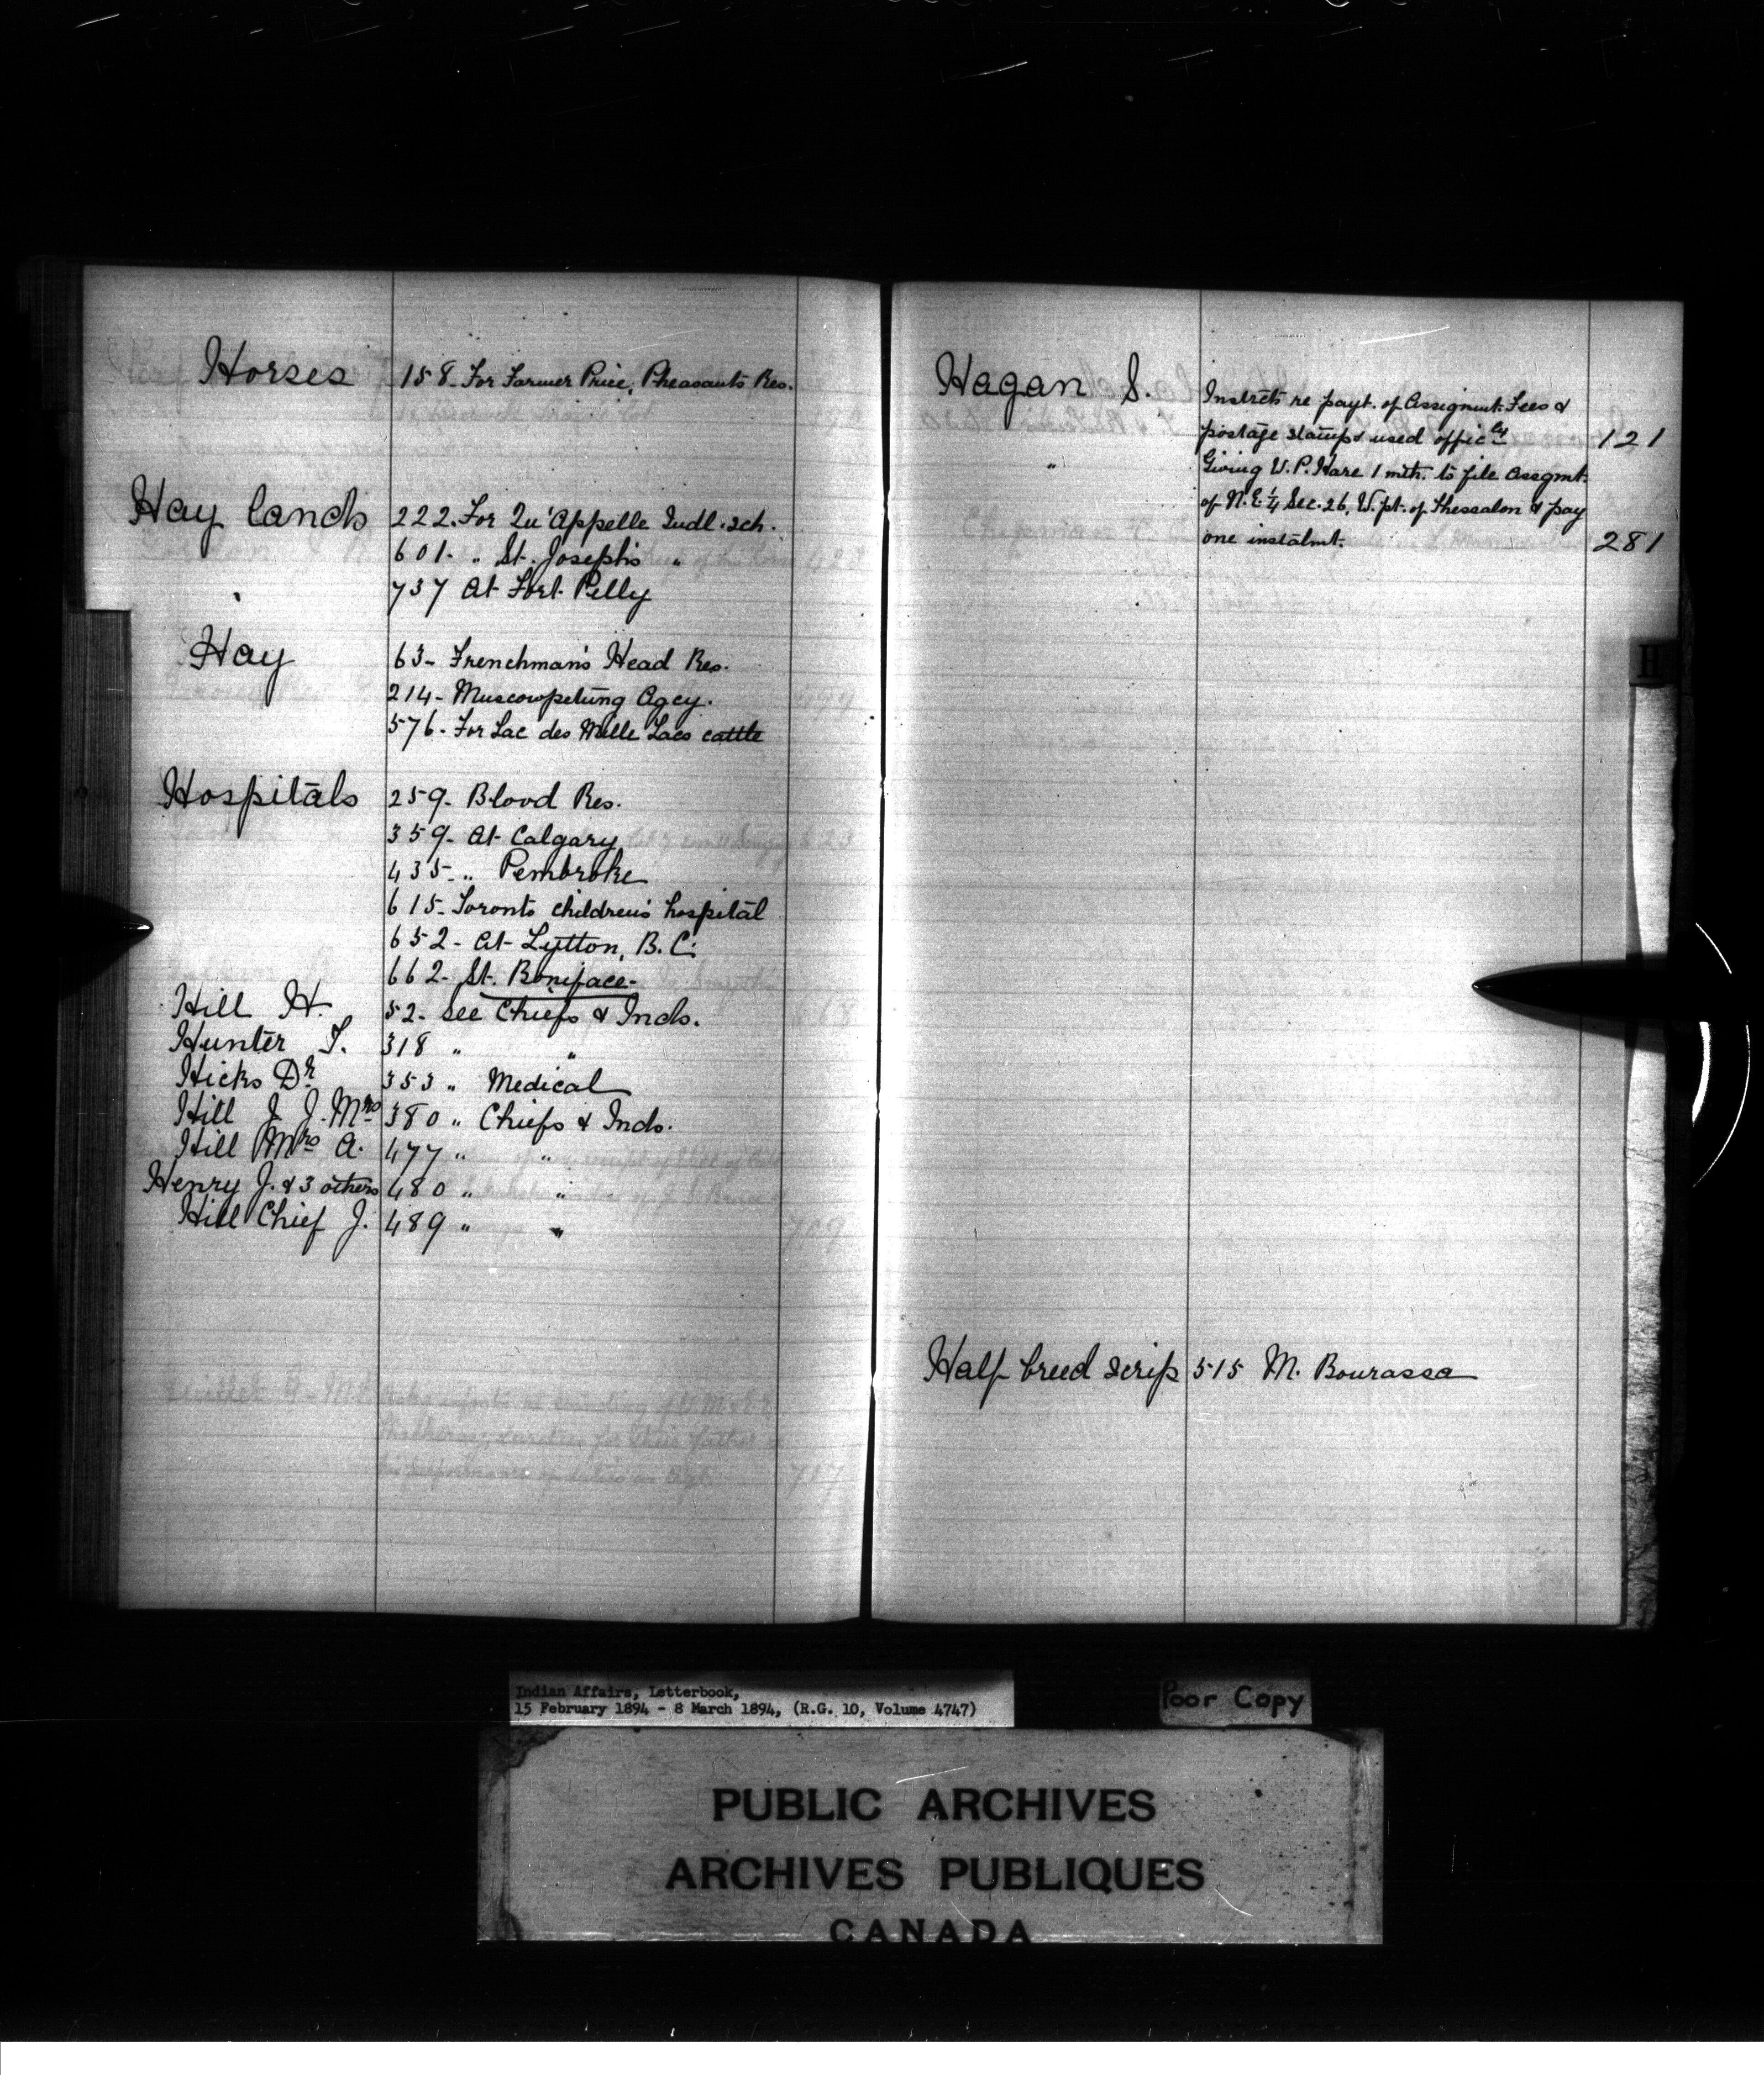 Horses 158- For Farmer Price, Pheasants Res.
Hay lands 222. For Qu'Appelle Indl. sch.
601- " St. Joseph's "
737 At Fort Pelly
Hay 63- Frenchman's Head Res.
214- Muscowpetung Agcy.
576- For Lac des Mille Lacs cattle
Hospitals 259- Blood Res.
359- At Calgary
435- " Pembroke
615- Toronto children's hospital
652- At Lytton, B.C.
662- St. Boniface-
Hill H. 52- See Chiefs & Inds.
Hunter T. 318 " "
Hicks Dr 353 " Medical
Hill J. J. Mrs 380 " Chiefs & Inds.
Hill Mrs A. 477 " "
Henry J. & 3 others 480 " "
Hill Chief J. 489 " "
Hagan S. Instrcts re payt. of Assignmt. Fees &
postage stamps used officly 121
" Giving W. P. Hare 1 mth. to file Assgmt.
of N.E. 1/4 Sec. 26, W. pt. of Thessalon & pay
one instalmt. 281
H
Half breed scrip 515 M. Bourassa
Indian Affairs, Letterbook,
15 February 1894 - 8 March 1894, (R.G. 10, Volume 4747)
Poor Copy
PUBLIC ARCHIVES
ARCHIVES PUBLIQUES
CANADA